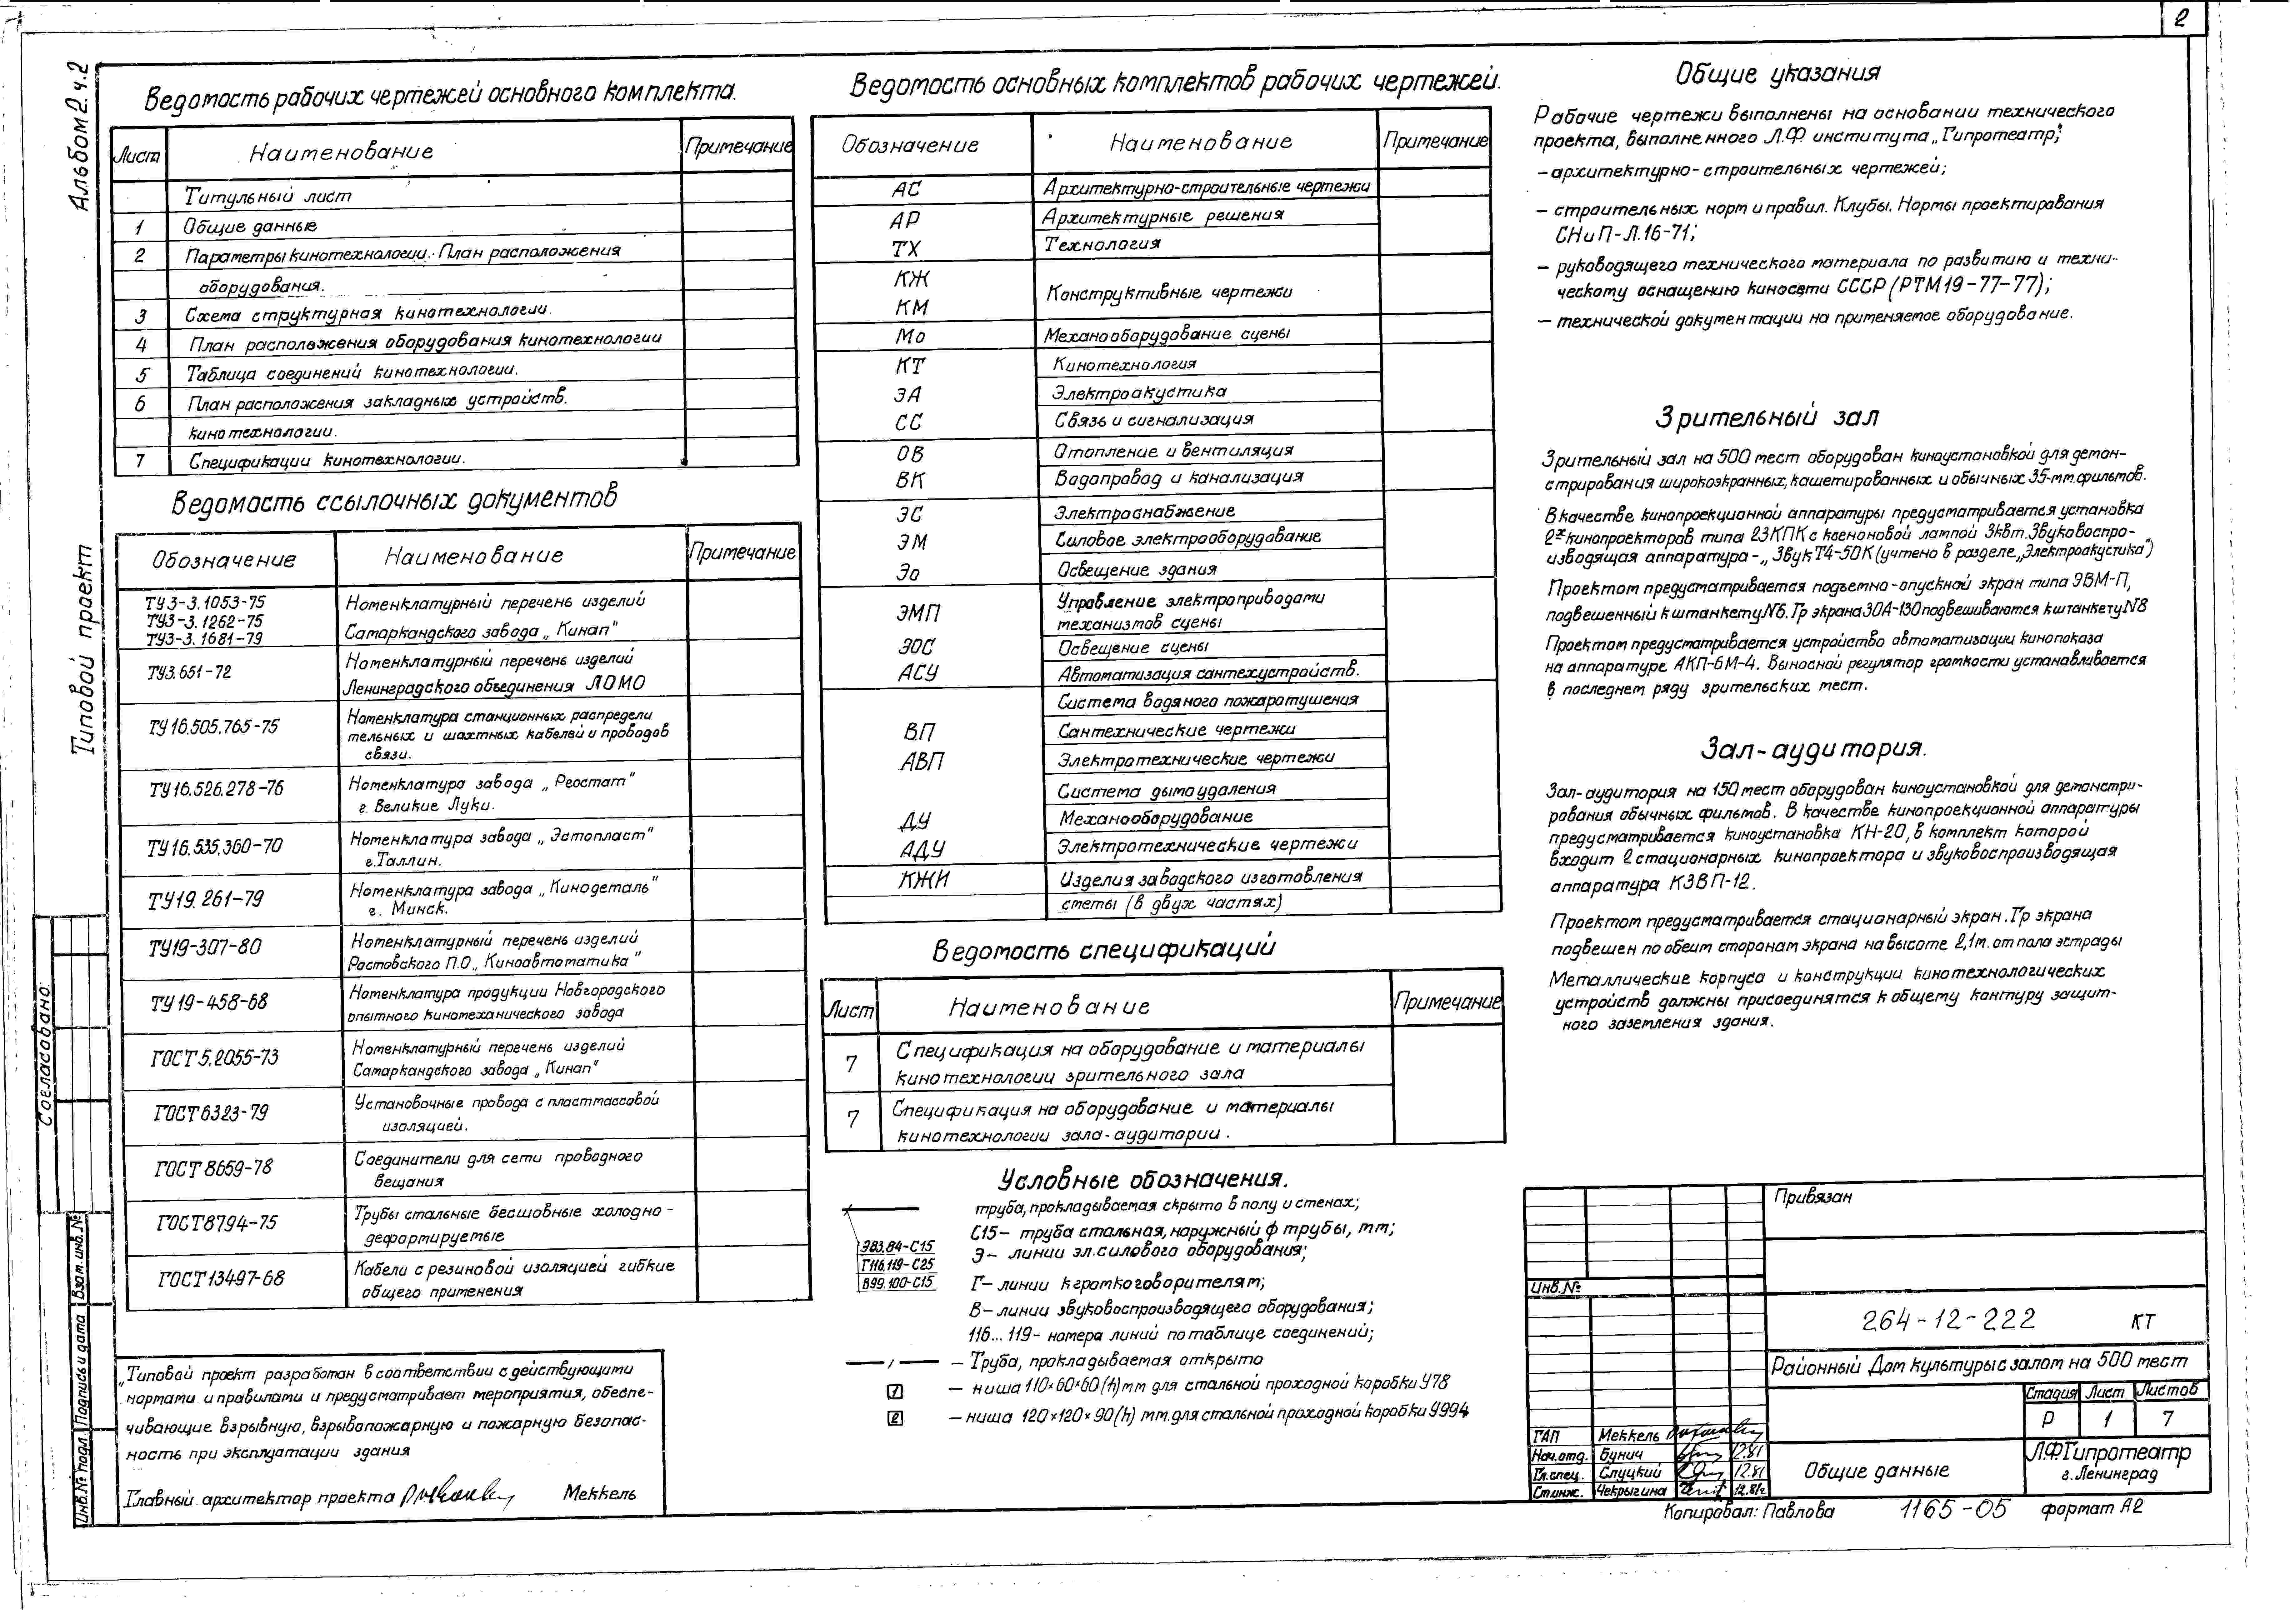 2
Альбом 2. ч.2
Типовой проект
Согласовано:
Инв.№ подл. Подпись и дата Взам. инв. №
Ведомость рабочих чертежей основного комплекта.
Лист Наименование Примечание
Титульный лист
1 Общие данные
2 Параметры кинотехнологии. План расположения
оборудования.
3 Схема структурная кинотехнологии.
4 План расположения оборудования кинотехнологии
5 Таблица соединений кинотехнологии.
6 План расположения закладных устройств.
кинотехнологии.
7 Спецификации кинотехнологии.
Ведомость ссылочных документов
Обозначение Наименование Примечание
ТУ3-3.1053-75 Номенклатурный перечень изделий
ТУ3-3.1262-75
ТУ3-3.1681-79 Самаркандского завода „Кинап"
ТУ3.651-72 Номенклатурный перечень изделий
Ленинградского объединения ЛОМО
ТУ16.505.765-75 Номенклатура станционных распредели
тельных и шахтных кабелей и проводов
связи.
ТУ16.526.278-76 Номенклатура завода „Реостат"
г. Великие Луки.
ТУ16.535.360-70 Номенклатура завода „Эстопласт"
г.Таллин.
ТУ19.261-79 Номенклатура завода „Кинодеталь"
г. Минск.
ТУ19-307-80 Номенклатурный перечень изделий
Ростовского П.О „Киноавтоматика"
ТУ19-458-68 Номенклатура продукции Новгородского
опытного киномеханического завода
ГОСТ5.2055-73 Номенклатурный перечень изделий
Самаркандского завода „Кинап"
ГОСТ6323-79 Установочные провода с пластмассовой
изоляцией.
ГОСТ8659-78 Соединители для сети проводного
вещания
ГОСТ8794-75 Трубы стальные бесшовные холодно-
деформируемые
ГОСТ13497-68 Кабели с резиновой изоляцией гибкие
общего применения
„Типовой проект разработан в соответствии с действующими
нормами и правилами и предусматривает мероприятия, обеспе-
чивающие взрывную, взрывопожарную и пожарную безопас-
ность при эксплуатации здания
Главный архитектор проекта Меккель
Ведомость основных комплектов рабочих чертежей.
Обозначение Наименование Примечание
АС Архитектурно-строительные чертежи
АР Архитектурные решения
ТХ Технология
КЖ
КМ Конструктивные чертежи
Мо Механооборудование сцены
КТ Кинотехнология
ЭА Электроакустика
СС Связь и сигнализация
ОВ Отопление и вентиляция
ВК Водопровод и канализация
ЭС Электроснабжение
ЭМ Силовое электрооборудование
Эо Освещение здания
ЭМП Управление электроприводами
механизмов сцены
ЭОС Освещение сцены
АСУ Автоматизация сантехустройств.
Система водяного пожаротушения
ВП Сантехнические чертежи
АВП Электротехнические чертежи
Система дымоудаления
ДУ Механооборудование
АДУ Электротехнические чертежи
КЖИ Изделия заводского изготовления
сметы (в двух частях)
Ведомость спецификаций
Лист Наименование Примечание
7 Спецификация на оборудование и материалы
кинотехнологии зрительного зала
7 Спецификация на оборудование и материалы
кинотехнологии зала-аудитории.
Условные обозначения.
труба, прокладываемая скрыто в полу и стенах;
С15- труба стальная, наружный ф трубы, мм;
Э83.84-С15 Э- линии эл.силового оборудования;
Г116.119-С25
В99.100-С15 Г- линии к громкоговорителям;
В- линии звуковоспроизводящего оборудования;
116...119- номера линий по таблице соединений;
- Труба, прокладываемая открыто
1 - ниша 110×60×60(h)мм для стальной проходной коробки У78
2 - ниша 120×120×90(h) мм.для стальной проходной коробки У994
Общие указания
Рабочие чертежи выполнены на основании технического
проекта, выполненного Л.Ф. института „Гипротеатр";
- архитектурно-строительных чертежей;
- строительных норм и правил. Клубы. Нормы проектирования
СНиП-Л.16-71;
- руководящего технического материала по развитию и техни-
ческому оснащению киносети СССР (РТМ19-77-77);
- технической документации на применяемое оборудование.
Зрительный зал
Зрительный зал на 500 мест оборудован киноустановкой для демон-
стрирования широкоэкранных, кашетированных и обычных 35-мм.фильмов.
В качестве кинопроекционной аппаратуры предусматривается установка
2х кинопроекторов типа 23КПК с ксеноновой лампой 3квт. Звуковоспро-
изводящая аппаратура-„Звук Т4-50К (учтено в разделе „Электроакустика")
Проектом предусматривается подъемно-опускной экран типа ЭВМ-П,
подвешенный к штанкету N6. Гр экрана 30А-130 подвешиваются к штанкету N8
Проектом предусматривается устройство автоматизации кинопоказа
на аппаратуре АКП-6М-4. Выносной регулятор громкости устанавливается
в последнем ряду зрительских мест.
Зал-аудитория.
Зал-аудитория на 150 мест оборудован киноустановкой для демонстри-
рования обычных фильмов. В качестве кинопроекционной аппаратуры
предусматривается киноустановка КН-20, в комплект которой
входит 2 стационарных кинопроектора и звуковоспроизводящая
аппаратура КЗВП-12.
Проектом предусматривается стационарный экран. Гр экрана
подвешен по обеим сторонам экрана на высоте 2,1м. от пола эстрады
Металлические корпуса и конструкции кинотехнологических
устройств должны присоединятся к общему контуру защит-
ного заземления здания.
Привязан
Инв.№
264-12-222 КТ
Районный Дом культуры с залом на 500 мест
Стадия Лист Листов
Р 1 7
ГАП Меккель
Нач.отд. Бунич 12.81
Гл.спец. Слуцкий 12.81
Ст.инж. Чекрыгина 12.81г
Общие данные
Л.Ф.Гипротеатр
г.Ленинград
Копировал: Павлова 1165-05 формат А2